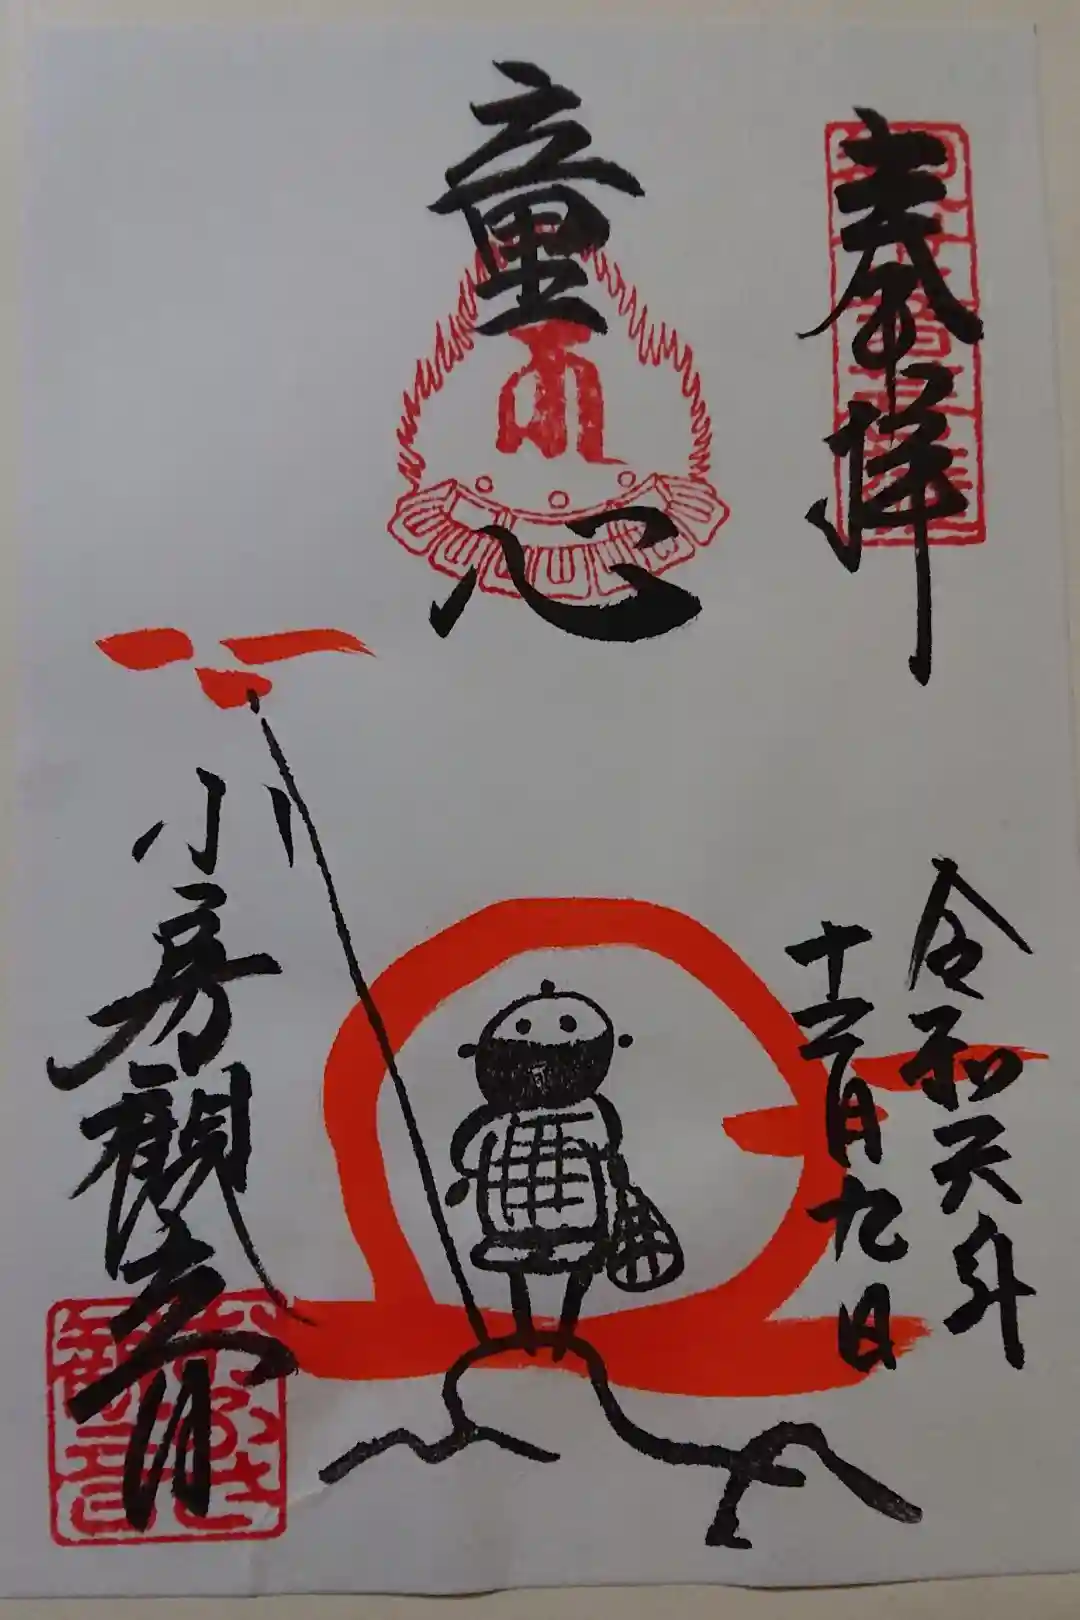 奉拝
令和六年
十二月九日
童心
小房観音